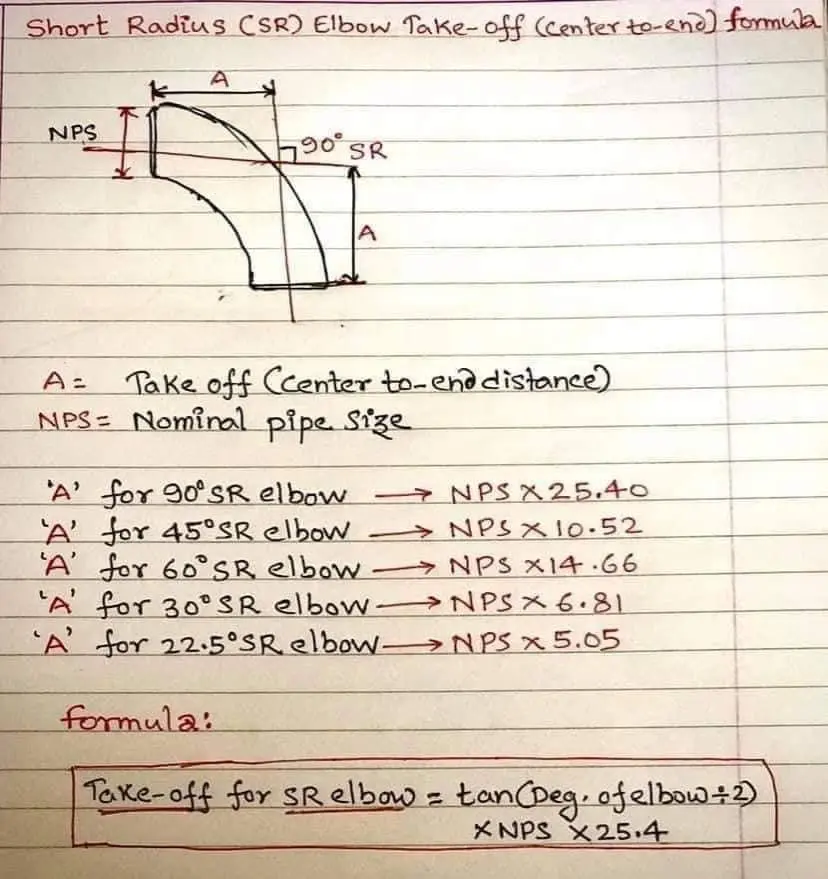 Short Radius (SR) Elbow Take-off (Center to-end) formula
A
NPS
90° SR
A
A = Take off (Center to-end distance)
NPS = Nominal pipe size
'A' for 90° SR elbow → NPS X 25.40
'A' for 45° SR elbow → NPS X 10.52
'A' for 60° SR elbow → NPS X 14.66
'A' for 30° SR elbow → NPS X 6.81
'A' for 22.5° SR elbow → NPS X 5.05
formula:
Take-off for SR elbow = tan(Deg. of elbow ÷ 2)
X NPS X 25.4